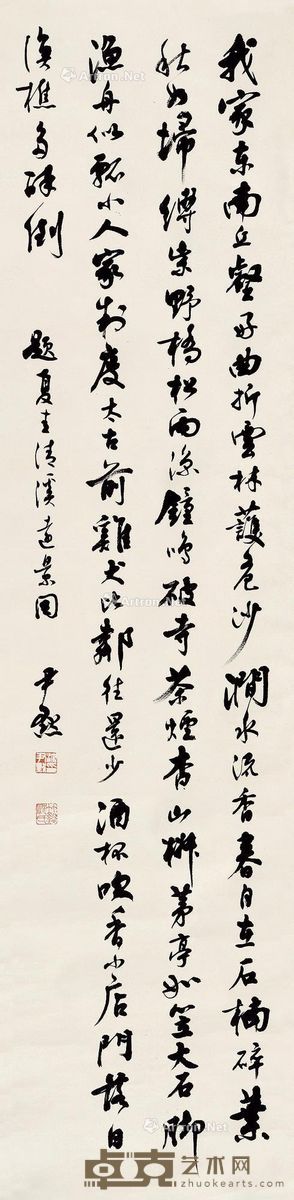 我家東南丘壑好曲折雲林護沙澗水流香春自在石楠碎葉
秋如埽縛柴野橋松雨涼鐘鳴破寺茶煙杳山椒茅亭如笠大石腳
漁舟似瓢小人家制度太古前雞犬比鄰往還少酒杯吹香小店門落日
漁樵多醉倒 題夏圭清溪遠景圖 尹默
卓克艺术网
www.zhuokearts.com